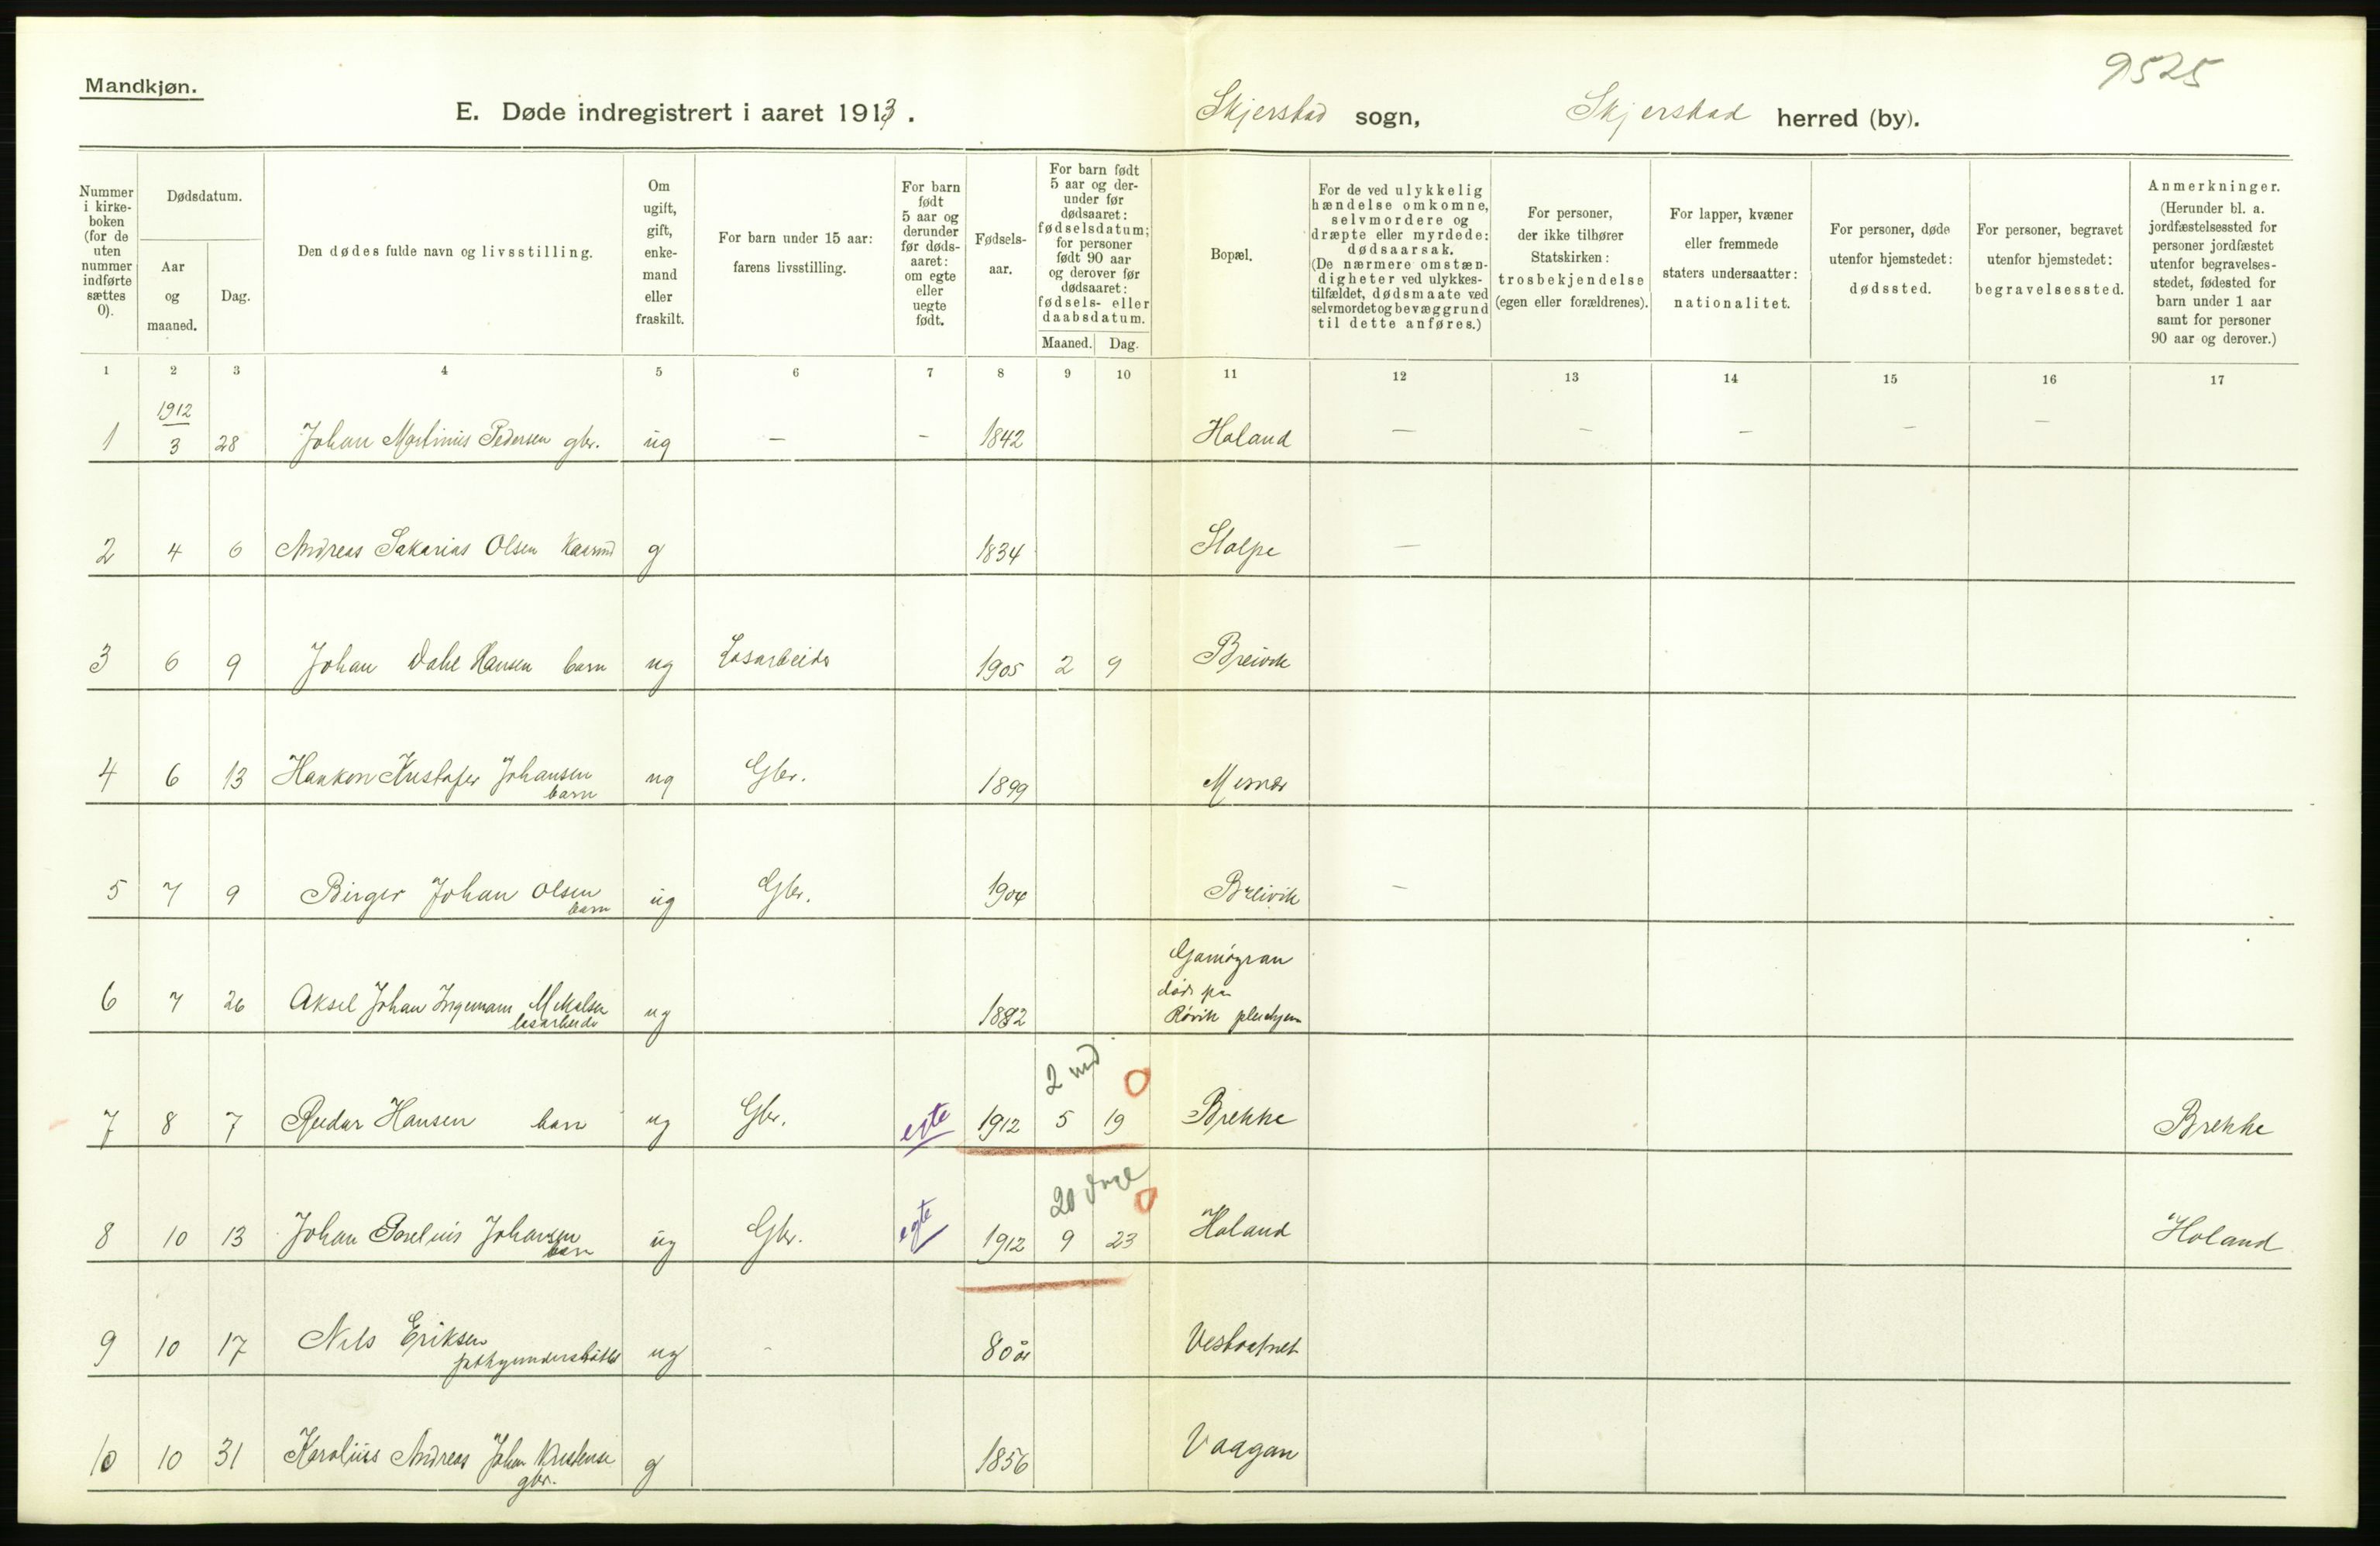 9525
Mandkjøn.
E. Døde indregistrert i aaret 1913. Skjerstad sogn, Skjerstad herred (by).
Nummer i kirke-boken (for de uten nummer indførte sættes 0).
Dødsdatum.
Aar og maaned.
Dag.
Den dødes fulde navn og livsstilling.
Om ugift, gift, enke-mand eller fraskilt.
For barn under 15 aar: farens livsstilling.
For barn født 5 aar og derunder før døds-aaret: om egte eller uegte født.
Fødsels-aar.
For barn født 5 aar og der-under før dødsaaret: fødselsdatum; for personer født 90 aar og derover før dødsaaret: fødsels- eller daabsdatum.
Maaned. Dag.
Bopæl.
For de ved ulykkelig hændelse omkomne, selvmordere og dræpte eller myrdede: dødsaarsak. (De nærmere omstæn-digheter ved ulykkes-tilfældet, dødsmaate ved selvmordet og bevæggrund til dette anføres.)
For personer, der ikke tilhører Statskirken: trosbekjendelse (egen eller forældrenes).
For lapper, kvæner eller fremmede staters undersaatter: nationalitet.
For personer, døde utenfor hjemstedet: dødssted.
For personer, begravet utenfor hjemstedet: begravelsessted.
Anmerkninger. (Herunder bl. a. jordfæstelsessted for personer jordfæstet utenfor begravelses-stedet, fødested for barn under 1 aar samt for personer 90 aar og derover.)
1 2 3 4 5 6 7 8 9 10 11 12 13 14 15 16 17
1912
1 3 28 Johan Martinus Pedersen gbr. ug — — 1842 Holand — — — — —
2 4 6 Andreas Sakarias Olsen Kaarmd g 1834 Stolpe —
3 6 9 Johan Dahl Hansen barn ug Løsarbeider 1905 2 9 Breivik
4 6 13 Haakon Kristofer Johansen ug Gbr. 1899
barn
5 7 9 Birger Johan Olsen ug Gbr. 1904 Breivik —
barn
6 7 26 Aksel Johan Ingemann Mikalsen ug 1882
løsarbeider
død på
Røvik pleiehjem
2 md
7 8 7 Reidar Hansen barn ug Gbr. egte 1912 5 19 Brekke Brekke
20 dage
8 10 13 Johan Johansen ug Gbr. egte 1912 9 23 Holand Holand
barn
9 10 17 Nils Eriksen ug - 80 år Vestvatnet
10 10 31 Karolius Andreas Johan Kristensen g 1856 Vaagan
gbr.